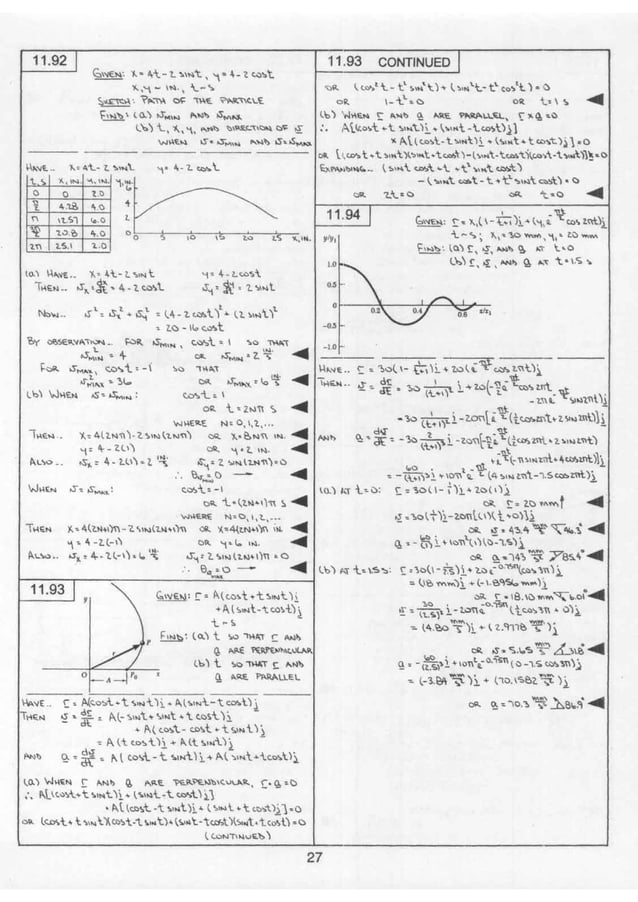 11.92
GIVEN: X = 4t - 2 SINt, Y = 4 - 2 COSt
X, Y ~ IN., t ~ S
SKETCH: PATH OF THE PARTICLE
FIND: (a) υMIN AND υMAX
(b) t, X, Y, AND DIRECTION OF υ
WHEN υ = υMIN AND υ = υMAX
HAVE.. X = 4t - 2 SINt Y = 4 - 2 COSt
t, S X, IN. Y, IN.
0 0 2.0
π/2 4.28 4.0
π 12.57 6.0
3π/2 20.8 4.0
2π 25.1 2.0
Y, IN.
6
4
2
0 5 10 15 20 25 X, IN.
(a) HAVE.. X = 4t - 2 SINt Y = 4 - 2 COSt
THEN.. υx = dx/dt = 4 - 2 COSt υy = dy/dt = 2 SINt
NOW.. υ² = υx² + υy² = (4 - 2 COSt)² + (2 SINt)²
= 20 - 16 COSt
BY OBSERVATION.. FOR υMIN, COSt = 1 SO THAT
υ²MIN = 4 OR υMIN = 2 IN/S
FOR υMAX, COSt = -1 SO THAT
υ²MAX = 36 OR υMAX = 6 IN/S
(b) WHEN υ = υMIN: COSt = 1
OR t = 2Nπ S
WHERE N = 0, 1, 2, ...
THEN.. X = 4(2Nπ) - 2 SIN(2Nπ) OR X = 8Nπ IN.
Y = 4 - 2(1) OR Y = 2 IN.
ALSO.. υx = 4 - 2(1) = 2 IN/S υy = 2 SIN(2Nπ) = 0
∴ θυMIN = 0 →
WHEN υ = υMAX: COSt = -1
OR t = (2N+1)π S
WHERE N = 0, 1, 2, ...
THEN X = 4(2N+1)π - 2 SIN(2N+1)π OR X = 4(2N+1)π IN.
Y = 4 - 2(-1) OR Y = 6 IN.
ALSO.. υx = 4 - 2(-1) = 6 IN/S υy = 2 SIN(2N+1)π = 0
∴ θυMAX = 0 →
11.93
GIVEN: r = A(COSt + t SINt)i
+ A(SINt - t COSt)j
t ~ S
FIND: (a) t SO THAT r AND
a ARE PERPENDICULAR
(b) t SO THAT r AND
a ARE PARALLEL
y
r
P
O
A
P₀
x
HAVE.. r = A(COSt + t SINt)i + A(SINt - t COSt)j
THEN υ = dr/dt = A(-SINt + SINt + t COSt)i
+ A(COSt - COSt + t SINt)j
= A(t COSt)i + A(t SINt)j
AND a = dυ/dt = A(COSt - t SINt)i + A(SINt + t COSt)j
(a) WHEN r AND a ARE PERPENDICULAR, r·a = 0
∴ A[(COSt + t SINt)i + (SINt - t COSt)j]
· A[(COSt - t SINt)i + (SINt + t COSt)j] = 0
OR (COSt + t SINt)(COSt - t SINt) + (SINt - t COSt)(SINt + t COSt) = 0
(CONTINUED)
11.93 CONTINUED
OR (COS²t - t² SIN²t) + (SIN²t - t² COS²t) = 0
OR 1 - t² = 0 OR t = 1 S
(b) WHEN r AND a ARE PARALLEL, r × a = 0
∴ A[(COSt + t SINt)i + (SINt - t COSt)j]
× A[(COSt - t SINt)i + (SINt + t COSt)j] = 0
OR [(COSt + t SINt)(SINt + t COSt) - (SINt - t COSt)(COSt - t SINt)]k = 0
EXPANDING.. (SINt COSt + t + t² SINt COSt)
- (SINt COSt - t + t² SINt COSt) = 0
OR 2t = 0 OR t = 0
11.94
GIVEN: r = X₁(1 - 1/(t+1))i + (Y₁ e^(-πt/2) COS 2πt)j
t ~ S; X₁ = 30 mm, Y₁ = 20 mm
FIND: (a) r, υ, AND a AT t = 0
(b) r, υ, AND a AT t = 1.5 S
y/y₁
1.0
0.5
0
-0.5
-1.0
0.2 0.4 0.6 x/x₁
HAVE.. r = 30(1 - 1/(t+1))i + 20(e^(-πt/2) COS 2πt)j
THEN.. υ = dr/dt = 30 1/(t+1)² i + 20(-π/2 e^(-πt/2) COS 2πt
- 2π e^(-πt/2) SIN 2πt)j
= 30 1/(t+1)² i - 20π[e^(-πt/2)(½ COS 2πt + 2 SIN 2πt)]j
AND a = dυ/dt = -30 2/(t+1)³ i - 20π[-π/2 e^(-πt/2)(½ COS 2πt + 2 SIN 2πt)
+ e^(-πt/2)(-π SIN 2πt + 4π COS 2πt)]j
= -60/(t+1)³ i + 10π² e^(-πt/2)(4 SIN 2πt - 7.5 COS 2πt)j
(a) AT t = 0: r = 30(1 - 1/1)i + 20(1)j
OR r = 20 mm ↑
υ = 30(1/1)i - 20π[(1)(½ + 0)]j
OR υ = 43.4 mm/S 46.3°
a = -60/(1) i + 10π²(1)(0 - 7.5)j
OR a = 743 mm/S² 85.4°
(b) AT t = 1.5 S: r = 30(1 - 1/2.5)i + 20e^(-0.75π)(COS 3π)j
= (18 mm)i + (-1.8956 mm)j
OR r = 18.10 mm 6.01°
υ = 30/(2.5)² i - 20π e^(-0.75π)(½ COS 3π + 0)j
= (4.80 mm/S)i + (2.9778 mm/S)j
OR υ = 5.65 mm/S 31.8°
a = -60/(2.5)³ i + 10π² e^(-0.75π)(0 - 7.5 COS 3π)j
= (-3.84 mm/S²)i + (70.1582 mm/S²)j
OR a = 70.3 mm/S² 86.9°
27